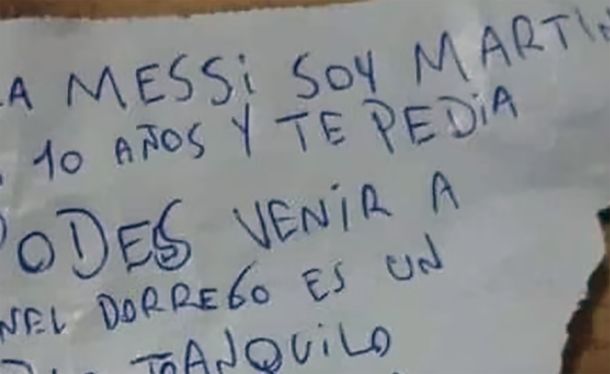 A MESSi SOY MARTIN
10 AÑOS Y TE PEDiA
PODES VENiR A
NEL DORREGO ES UN
TRANQUiLO